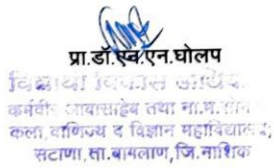 प्रा.डॉ.एच.एन.घोलप
विद्यार्थी विकास
कर्मवीर आबासाहेब तथा ना.म.सोन
कला,वाणिज्य व विज्ञान महाविद्यालय;
सटाणा,ता.बागलाण,जि.नाशिक